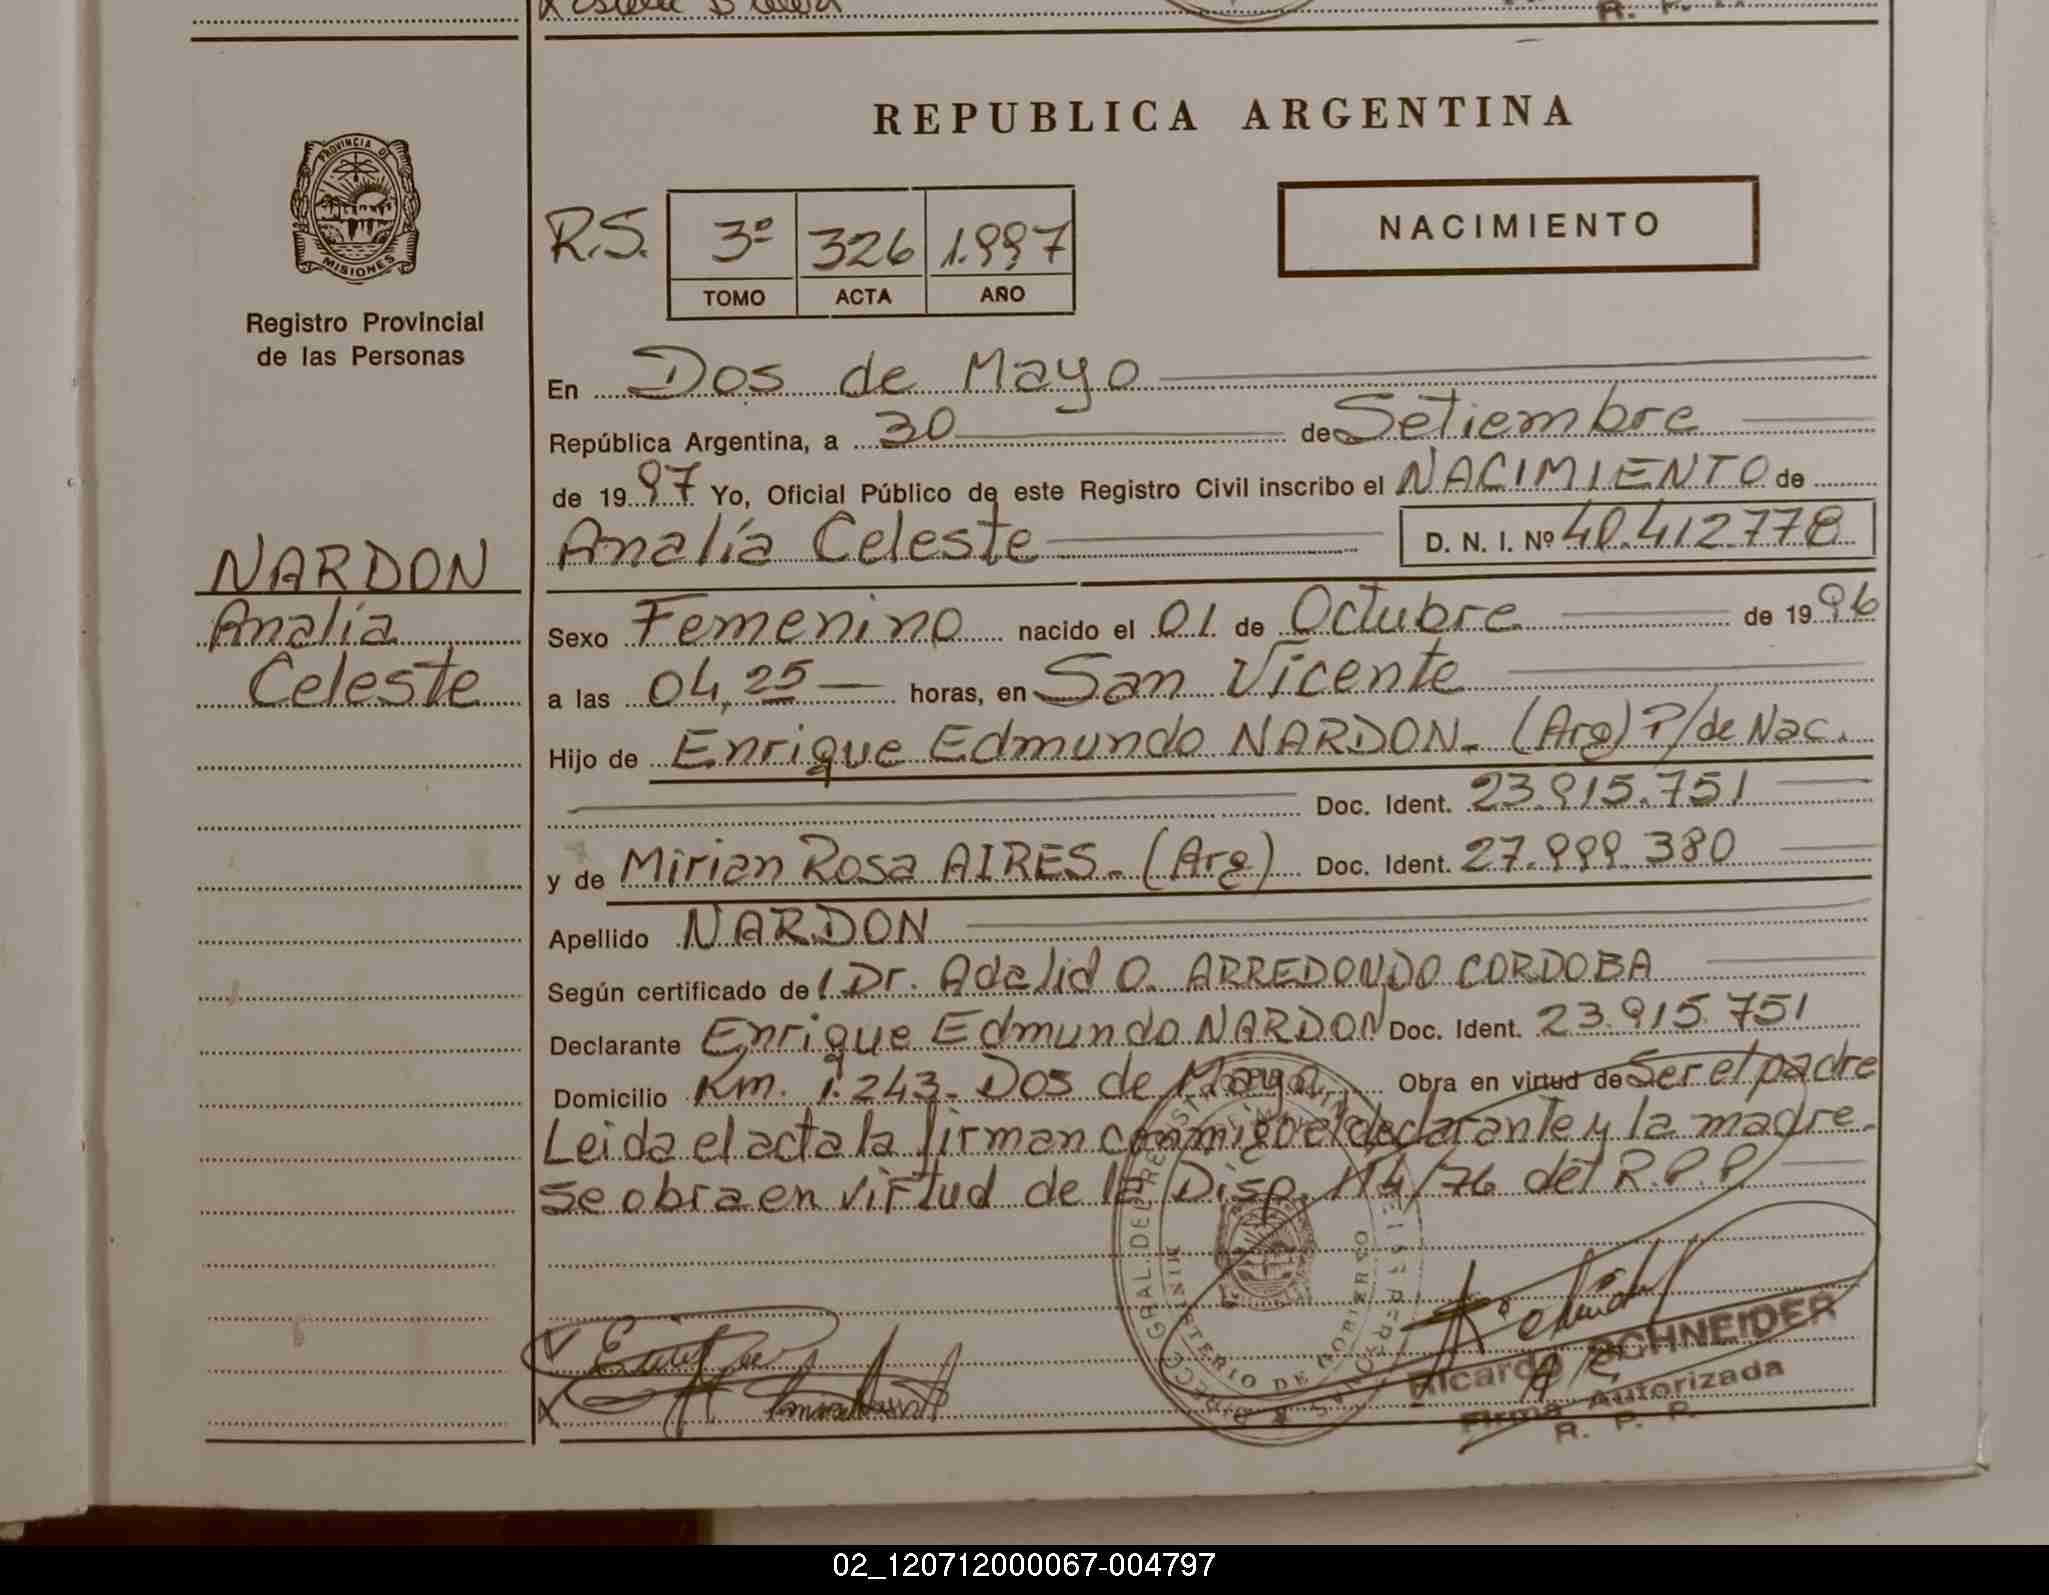 REPUBLICA ARGENTINA
PROVINCIA DE
MISIONES
Registro Provincial
de las Personas
R.S. 3º 326 1.997
TOMO ACTA AÑO
NACIMIENTO
En Dos de Mayo
República Argentina, a 30 de Setiembre
de 1997 Yo, Oficial Público de este Registro Civil inscribo el NACIMIENTO de
NARDON
Analía
Celeste
Analía Celeste D. N. I. Nº 40.412.778
Sexo Femenino nacido el 01 de Octubre de 1996
a las 04,25 horas, en San Vicente
Hijo de Enrique Edmundo NARDON. (Arg) P/de Nac.
Doc. Ident. 23.915.751
y de Mirian Rosa AIRES. (Arg) Doc. Ident. 27.999.380
Apellido NARDON
Según certificado de / Dr. Adalid O. ARREDONDO CORDOBA
Declarante Enrique Edmundo NARDON Doc. Ident. 23.915.751
Domicilio Km. 1.243. Dos de Mayo. Obra en virtud de Ser el padre
Leida el acta la firman conmigo el declarante y la madre.
Se obra en virtud de la Disp. 114/76 del R.P.P.
Ricardo SCHNEIDER
Firma Autorizada
R. P. P.
02_120712000067-004797